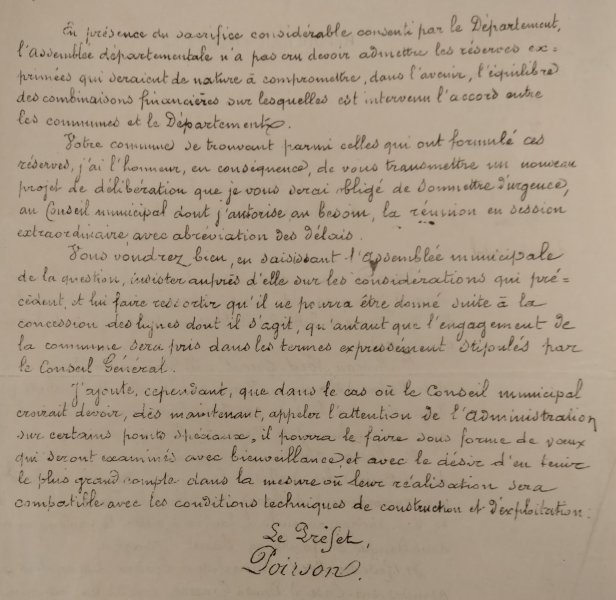 En présence du sacrifice considérable consenti par le Département,
l'Assemblée départementale n'a pas cru devoir admettre les réserves ex=
primées qui seraient de nature à compromettre, dans l'avenir, l'équilibre
des combinaisons financières sur lesquelles est intervenu l'accord entre
les communes et le Département.
Votre commune se trouvant parmi celles qui ont formulé ces
réserves, j'ai l'honneur, en conséquence, de vous transmettre un nouveau
projet de délibération que je vous serai obligé de soumettre d'urgence,
au Conseil municipal dont j'autorise au besoin, la réunion en session
extraordinaire avec abréviation des délais.
Vous voudrez bien, en saisissant l'Assemblée municipale
de la question, insister auprès d'elle sur les considérations qui pré=
cèdent, et lui faire ressortir qu'il ne pourra être donné suite à la
concession des lignes dont il s'agit, qu'autant que l'engagement de
la commune sera pris dans les termes expressément stipulés par
le Conseil Général.
J'ajoute, cependant, que dans le cas où le Conseil municipal
croirait devoir, dès maintenant, appeler l'attention de l'Administration
sur certains points spéciaux, il pourra le faire sous forme de vœux
qui seront examinés avec bienveillance, et avec le désir d'en tenir
le plus grand compte dans la mesure où leur réalisation sera
compatible avec les conditions techniques de construction et d'exploitation.
Le Préfet,
Poirson.